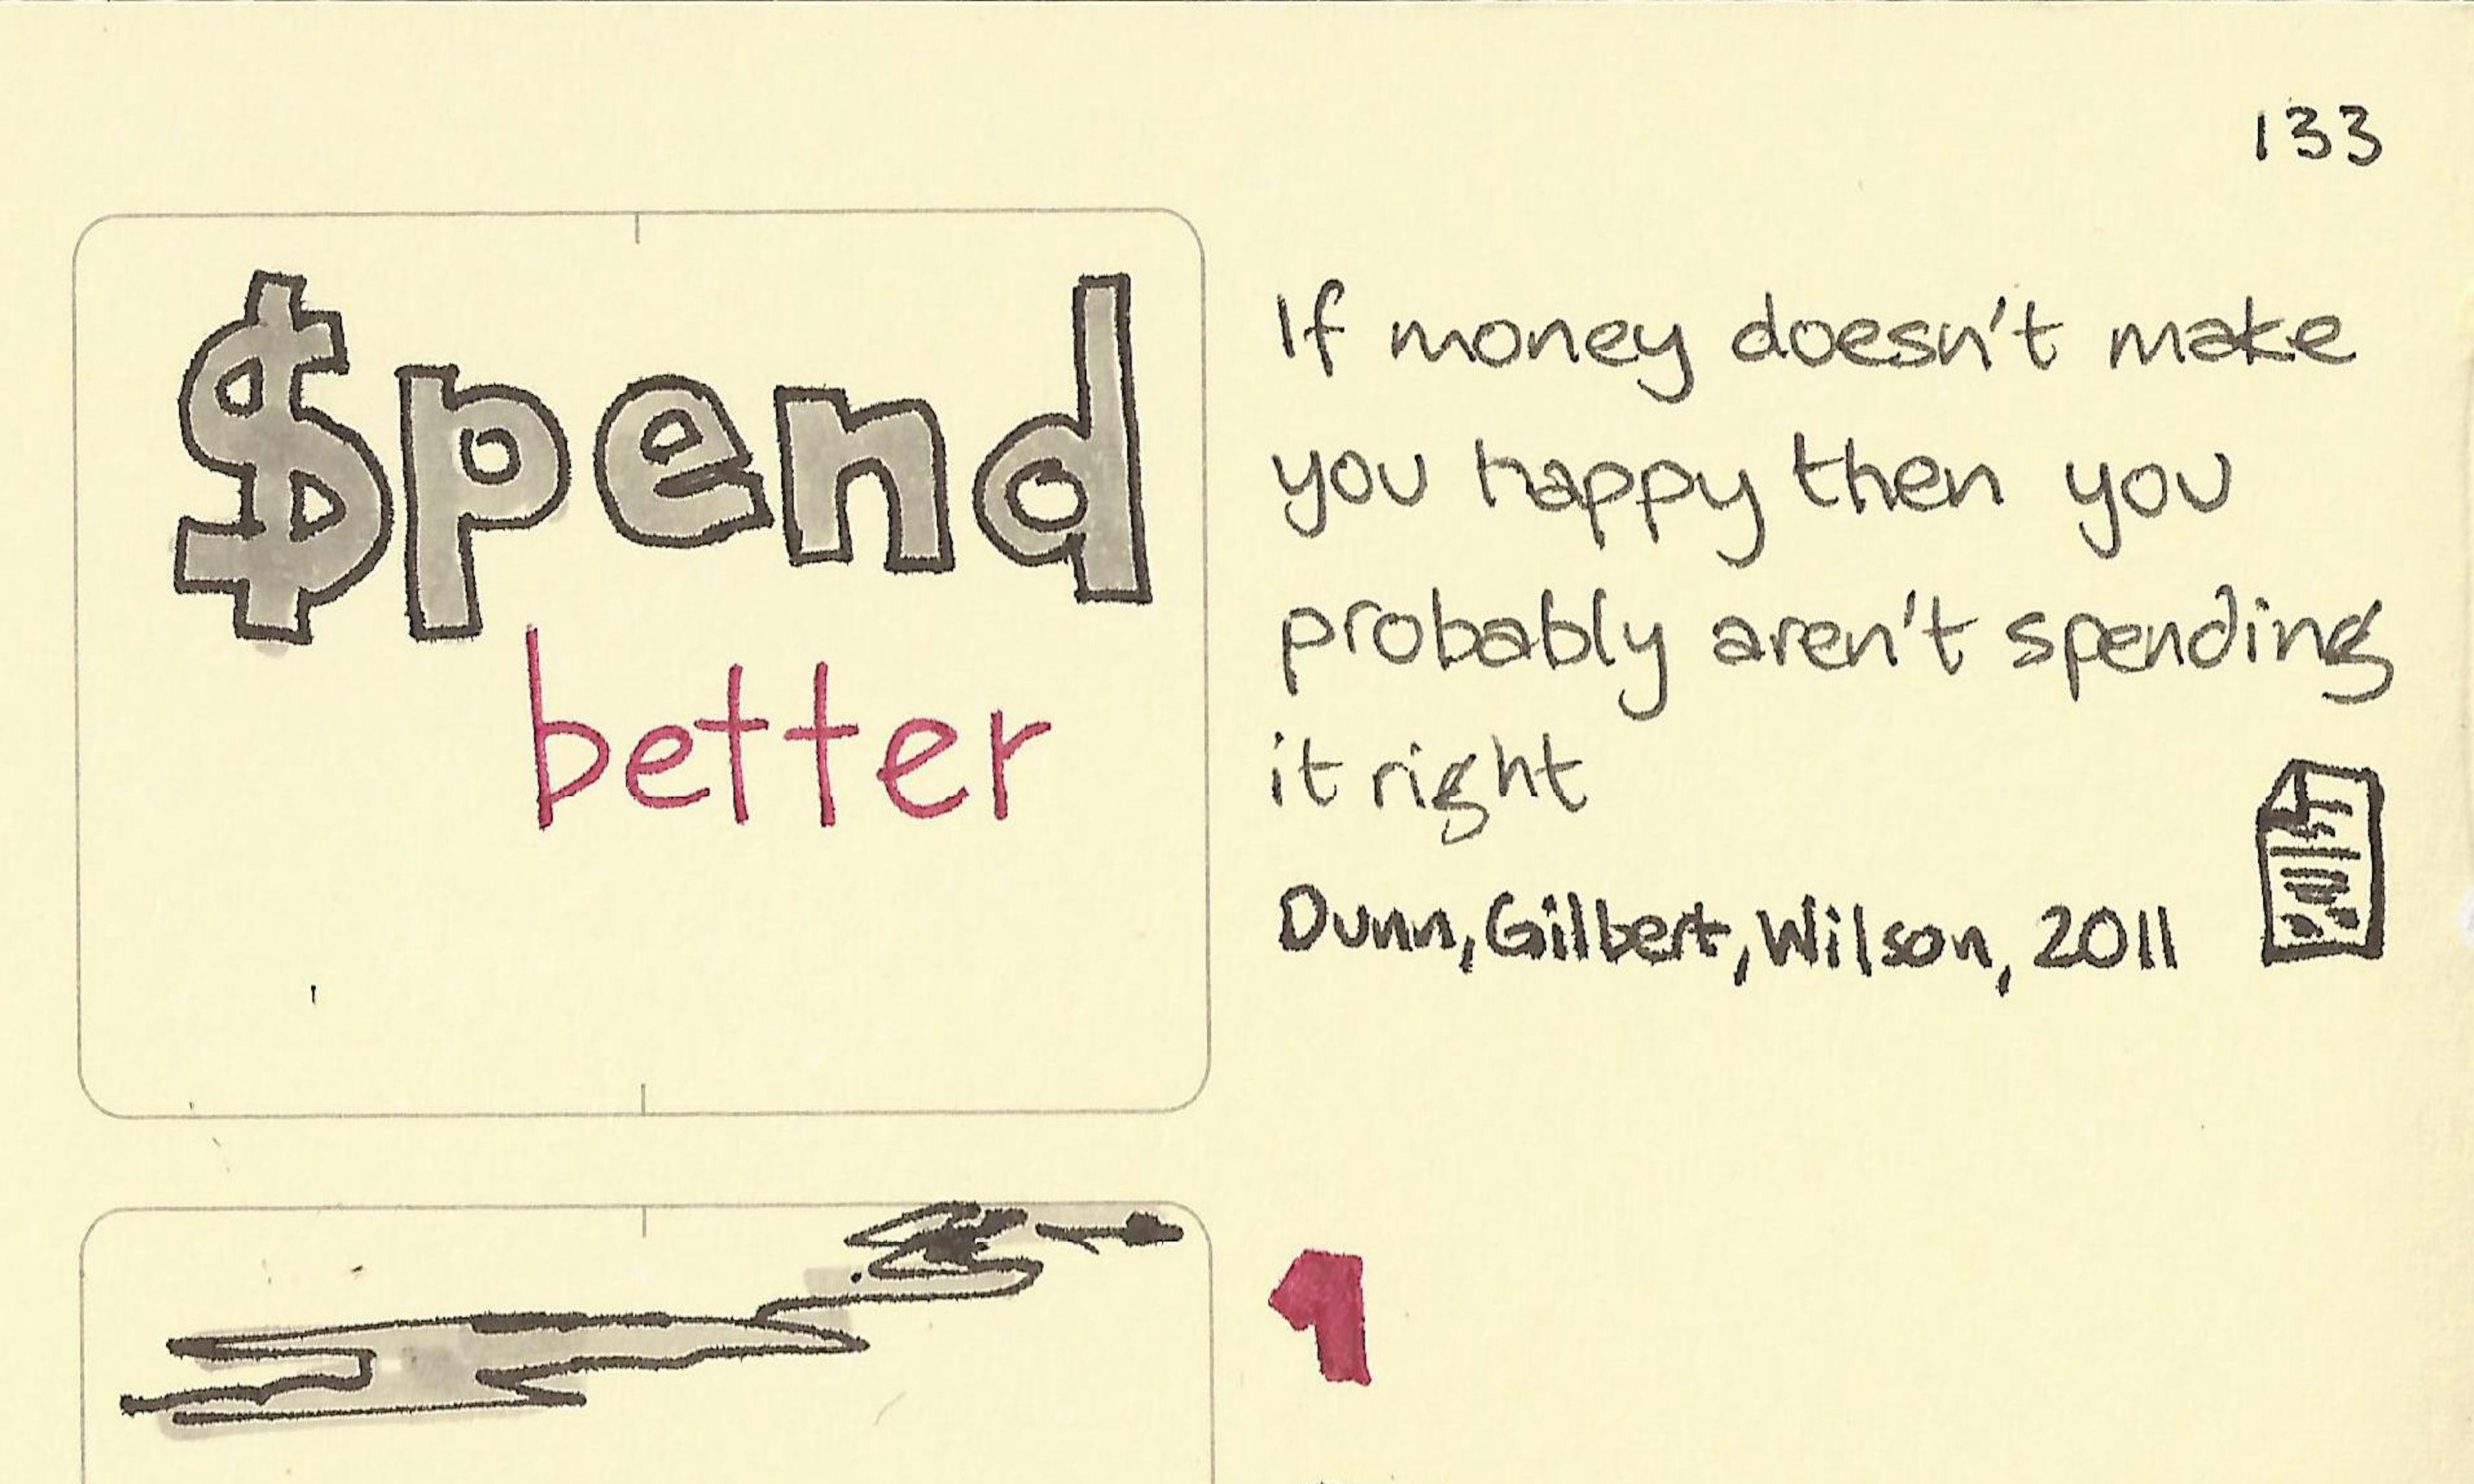 133
$pend
better
If money doesn't make
you happy then you
probably aren't spending
it right
Dunn, Gilbert, Wilson, 2011
1